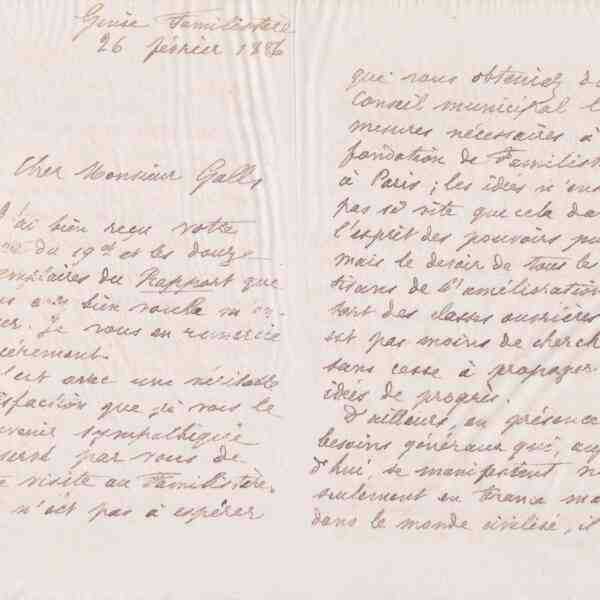 Guise Familistère
26 février 1886
Cher Monsieur
J'ai bien reçu votre
du 19 ct et les douze
emplaires du Rapport que
us avez bien voulu m'en-
er. Je vous en remercie
cèrement.
C'est avec une véritable
isfaction que j'ai vois le
uvenir sympathique
servé par vous de
e visite au Familistère.
n'est pas à espérer
que vous obteniez d
Conseil municipal l
mesures nécessaires à
fondation de Familist
à Paris ; les idées n'en
pas si vite que cela da
l'esprit des pouvoirs pu
mais le devoir de tous les
tisans de l'amélioration
sort des classes ouvrières
est pas moins de cherch
sans cesse à propager
idées de progrès.
D'ailleurs, en présence
besoins généraux qui, auj
d'hui, se manifestent n
seulement en France ma
dans le monde civilisé, il